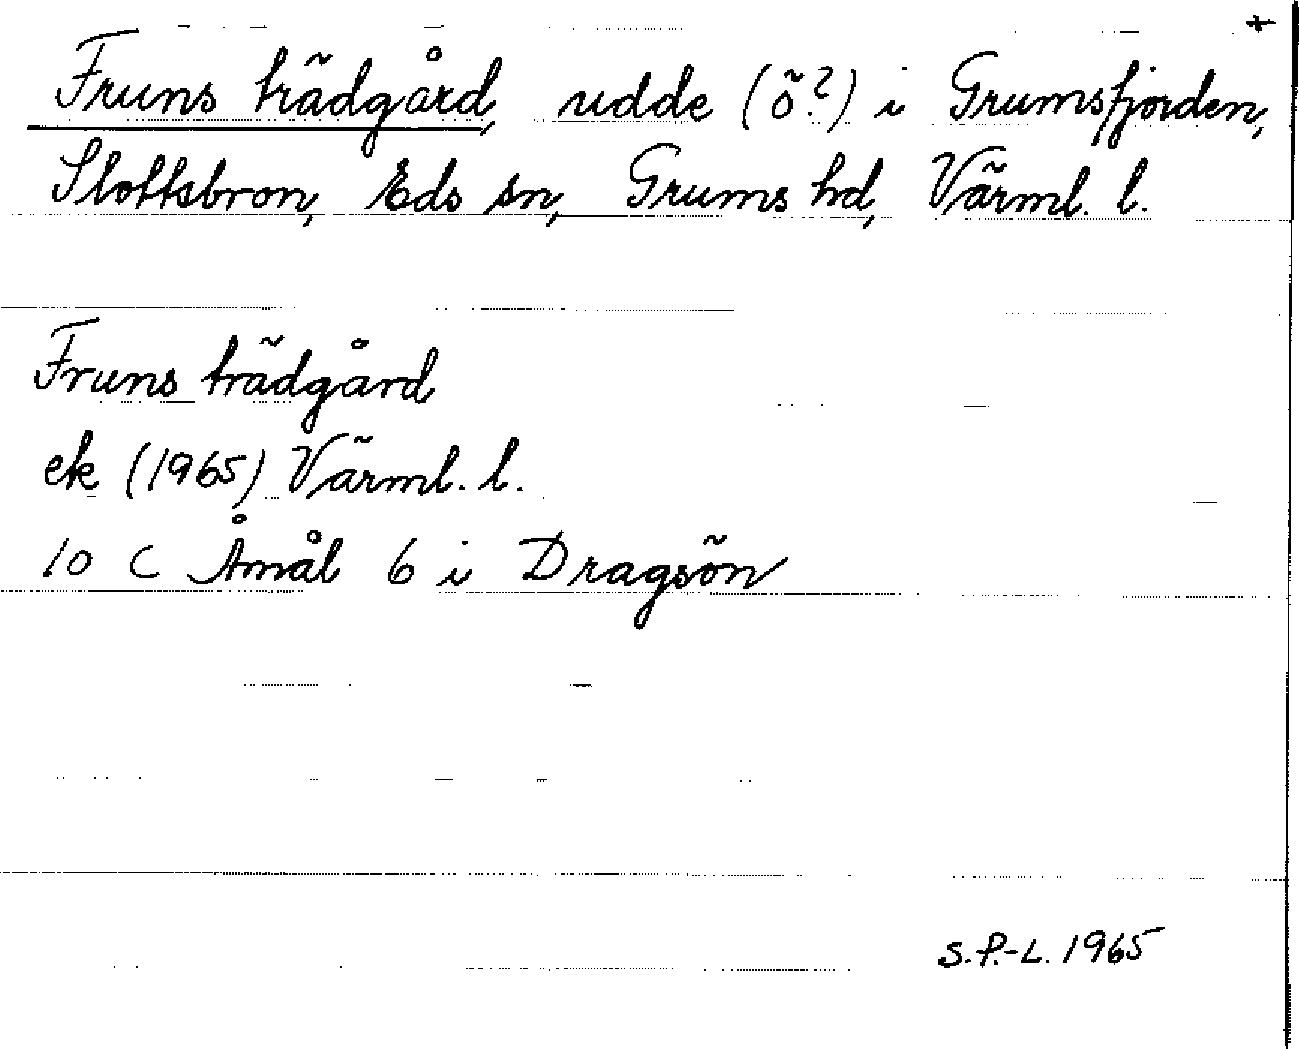 +
Fruns trädgård, udde (ö?) i Grumsfjorden,
Slottsbron, Eds sn, Grums hd, Värml. l.
Fruns trädgård
ek (1965) Värml. l.
10 C Åmål 6 i Dragsön
S.P.-L. 1965